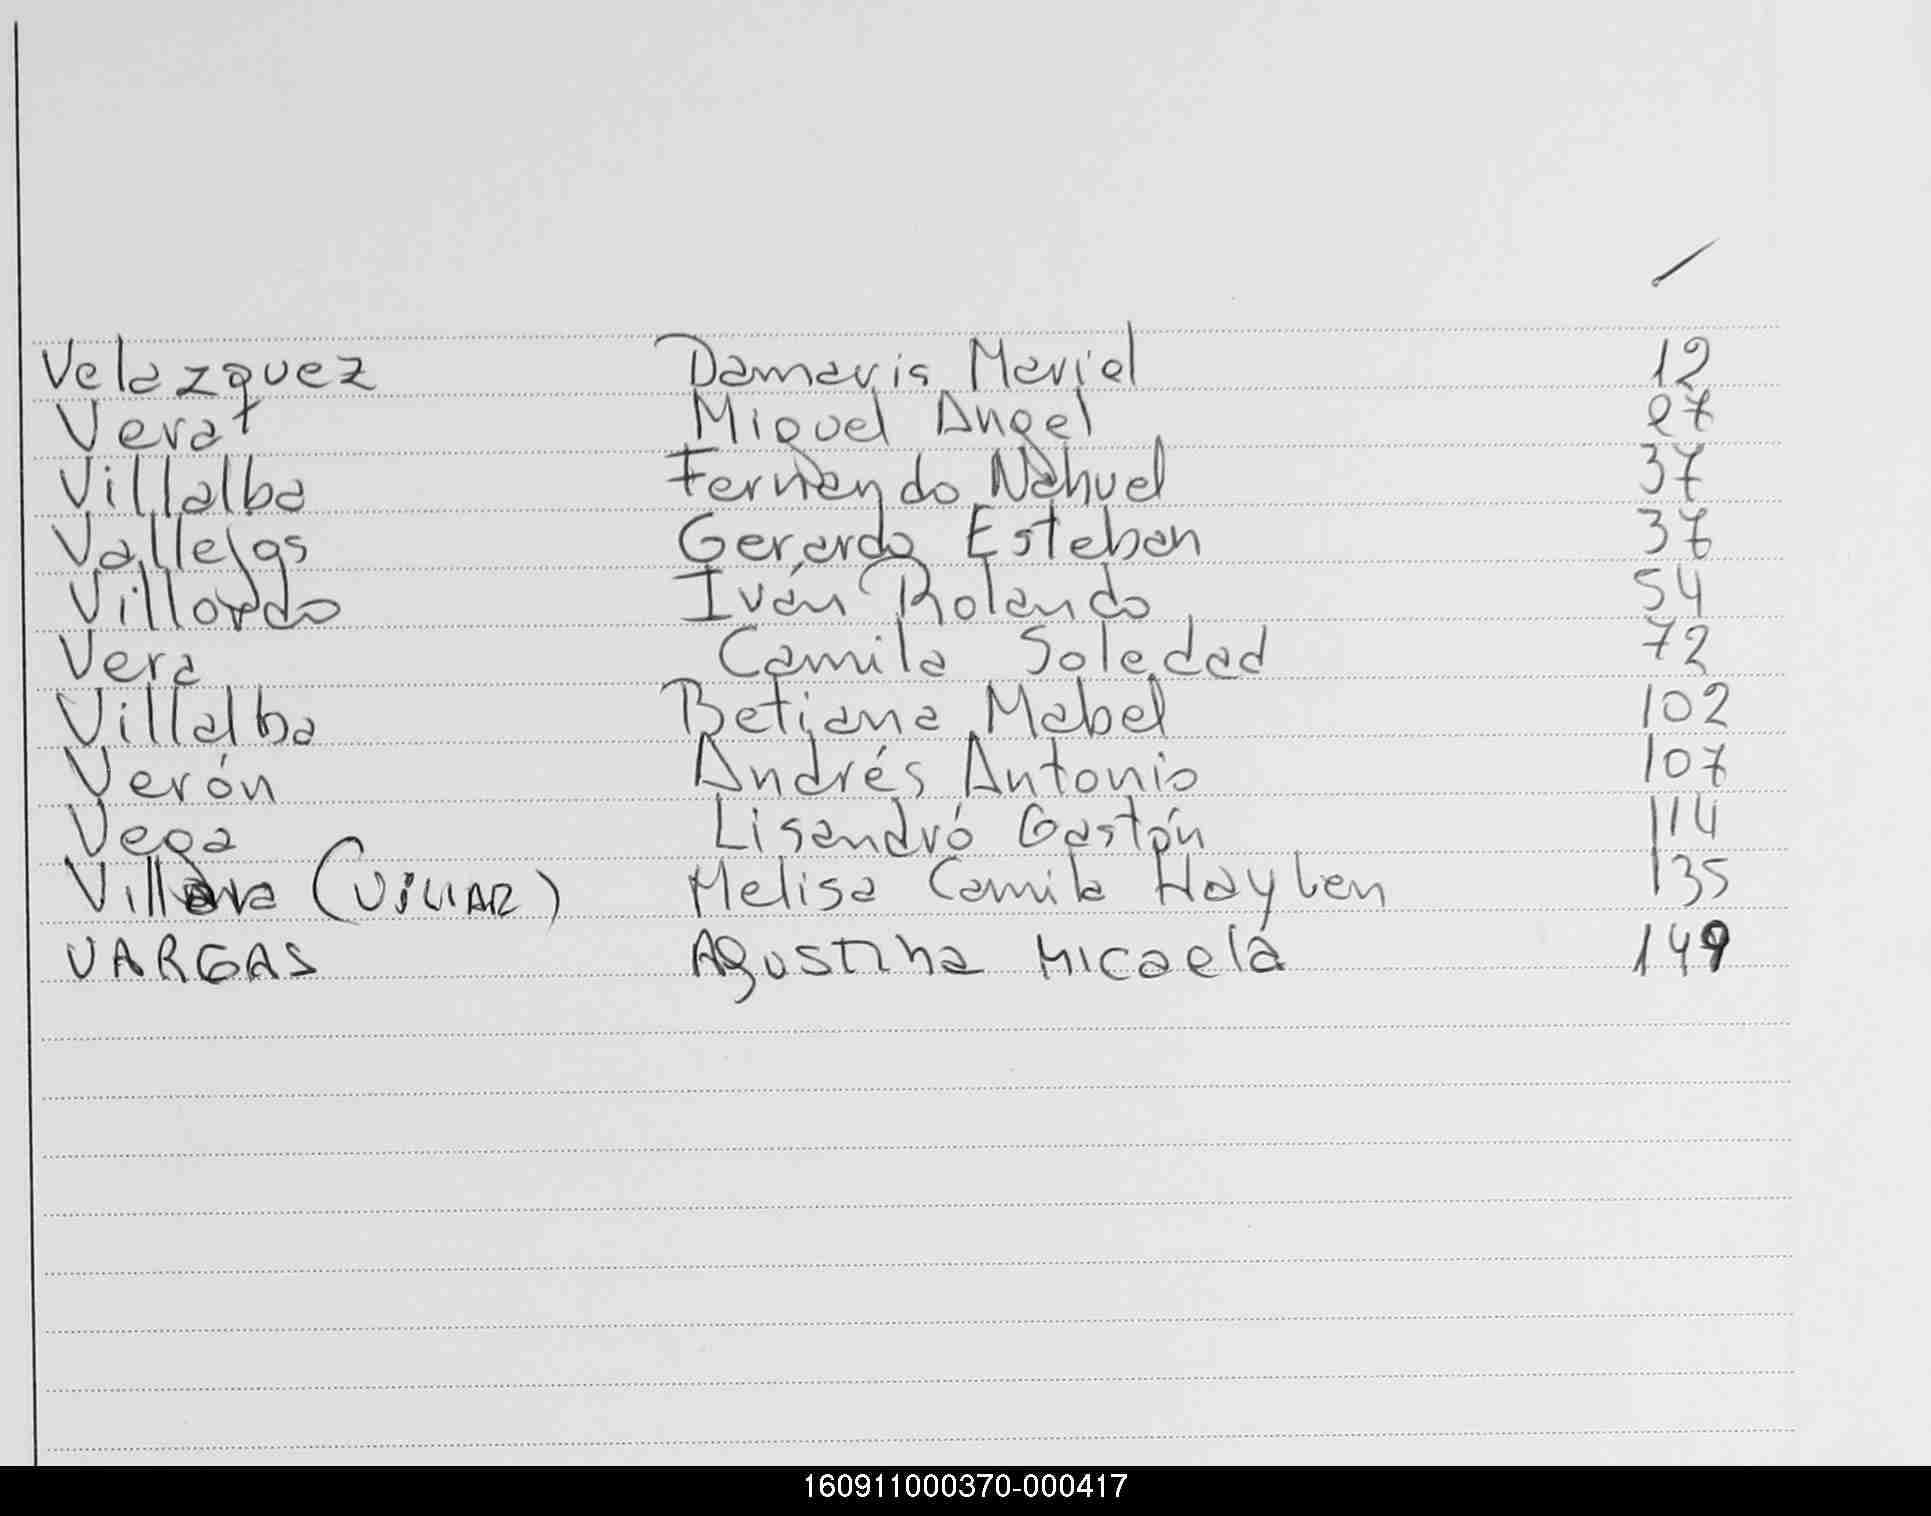 Velazquez Damaris Mariel 12
Vera Miguel Angel 27
Villalba Fernando Nahuel 37
Vallejos Gerardo Esteban 37
Villordo Iván Rolando 54
Vera Camila Soledad 72
Villalba Betiana Mabel 102
Verón Andrés Antonio 107
Vega Lisandro Gastón 114
(VILLAR) Melisa Camila Haylen 135
VARGAS Agustina Micaela 149
160911000370-000417